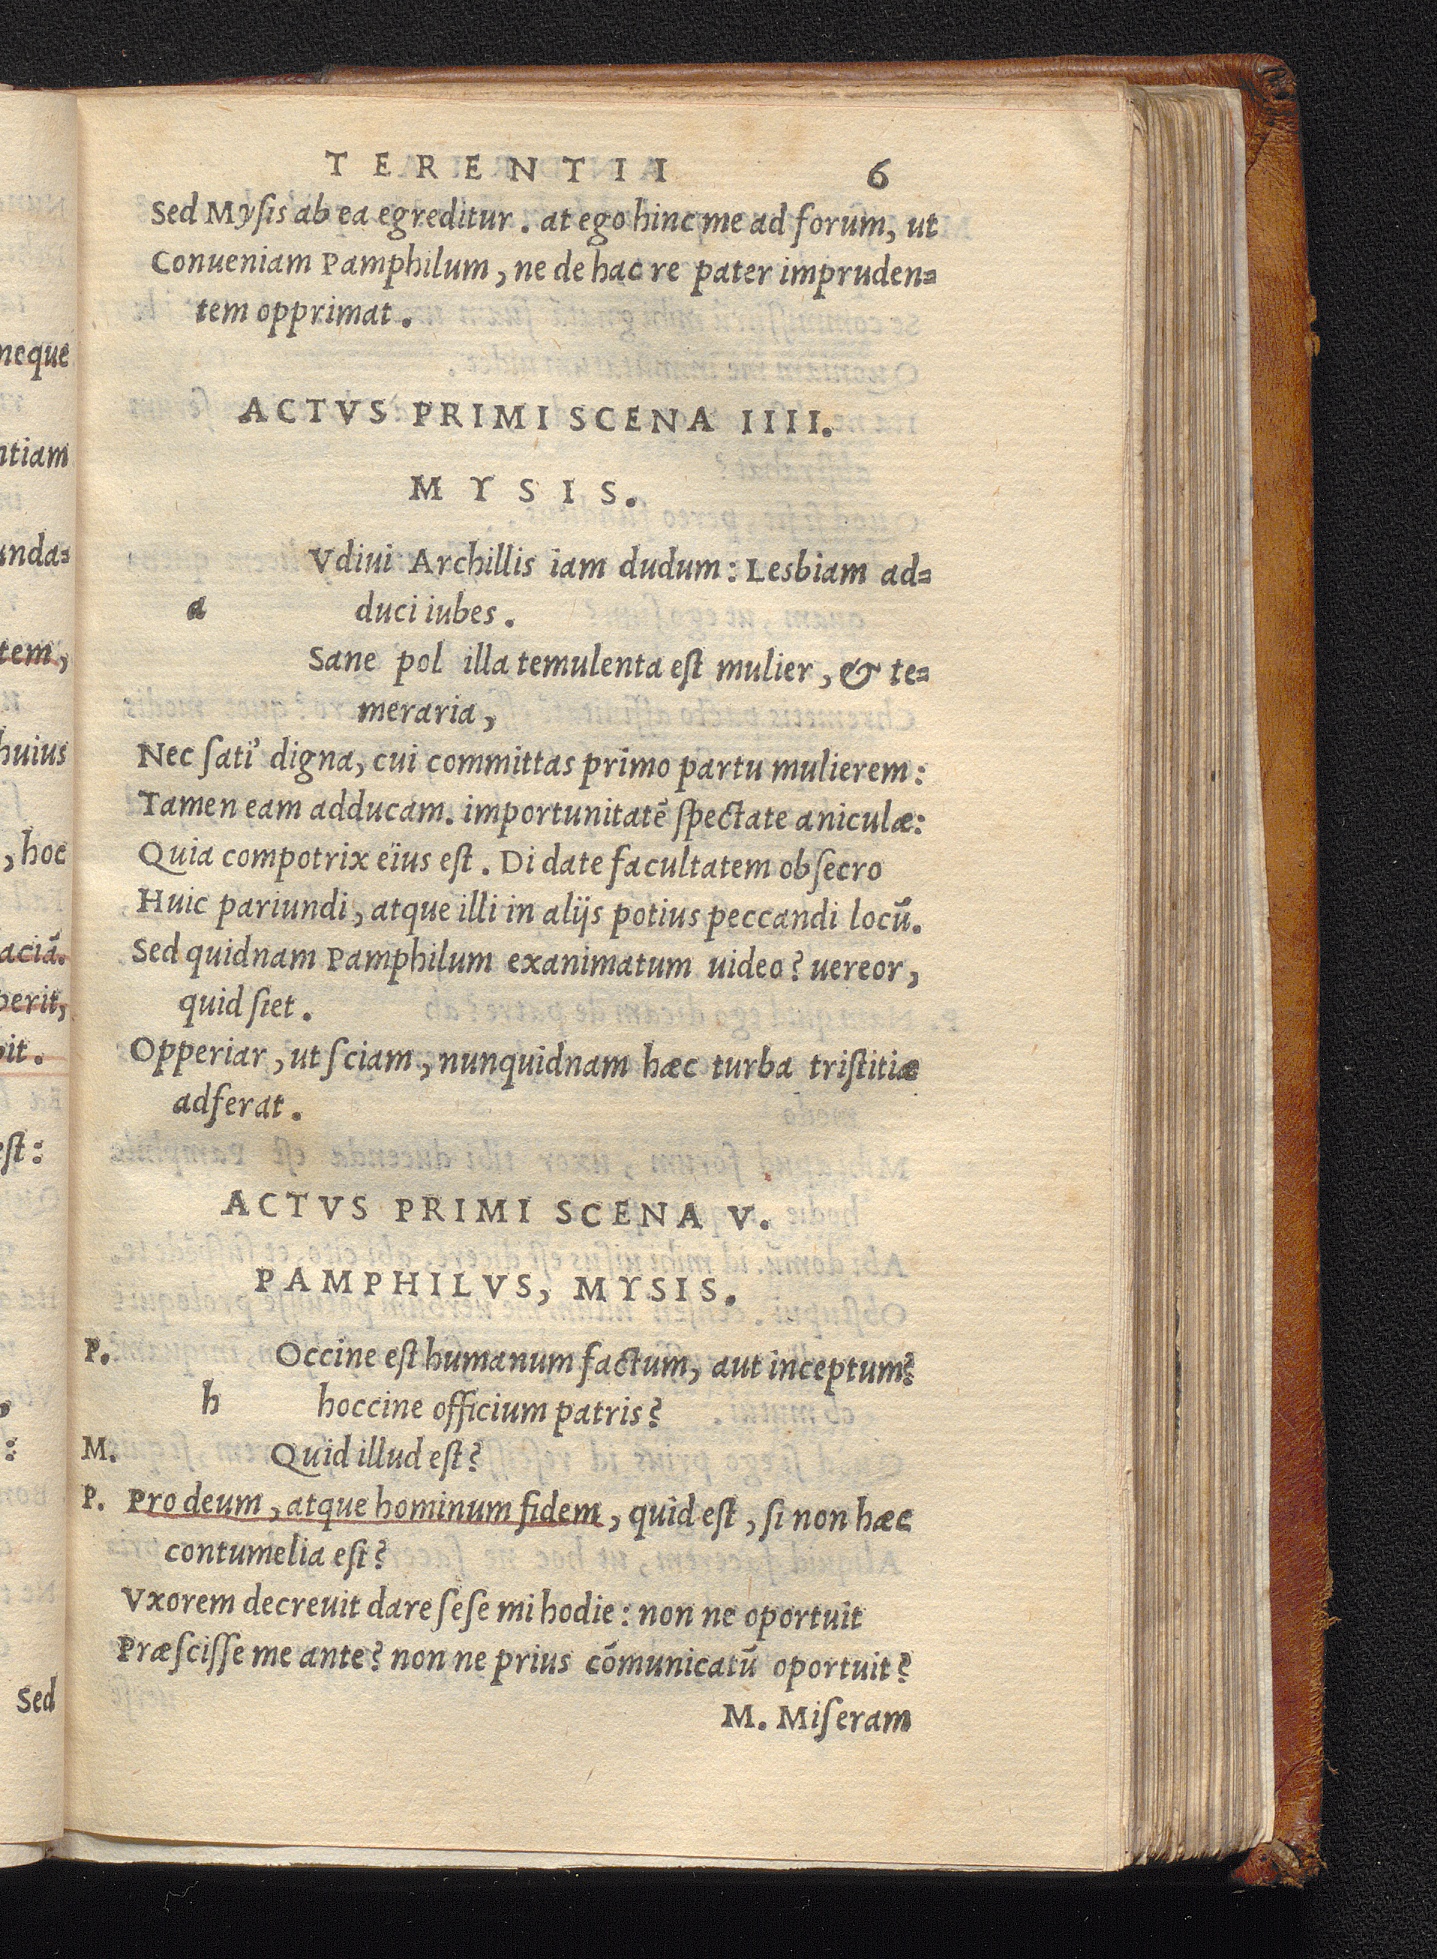 TERENTII 6
Sed Mysis ab ea egreditur. at ego hinc me ad forum, ut
Conueniam Pamphilum, ne de hac re pater impruden=
tem opprimat.
ACTVS PRIMI SCENA IIII.
MYSIS.
Vdiui Archillis iam dudum: Lesbiam ad=
a duci iubes.
Sane pol illa temulenta eſt mulier, & te=
meraria,
Nec ſati' digna, cui committas primo partu mulierem:
Tamen eam adducam. importunitatē ſpectate aniculæ:
Quia compotrix eïus eſt. Di date facultatem obſecro
Huic pariundi, atque illi in alijs potius peccandi locū.
Sed quidnam Pamphilum exanimatum uideo? uereor,
quid ſiet.
Opperiar, ut ſciam, nunquidnam hæc turba triſtitiæ
adferat.
ACTVS PRIMI SCENA V.
PAMPHILVS, MYSIS.
P. Occine eſt humanum factum, aut inceptum?
h hoccine officium patris?
M. Quid illud eſt?
P. Pro deum, atque hominum fidem, quid eſt, ſi non hæc
contumelia eſt?
Vxorem decreuit dare ſeſe mi hodie: non ne oportuit
Præſciſſe me ante? non ne prius cōmunicatū oportuit?
M. Miſeram
neque
ntiam
unda=
tem,
huius
, hoc
aciā.
perit,
it.
eſt:
,
:
Sed